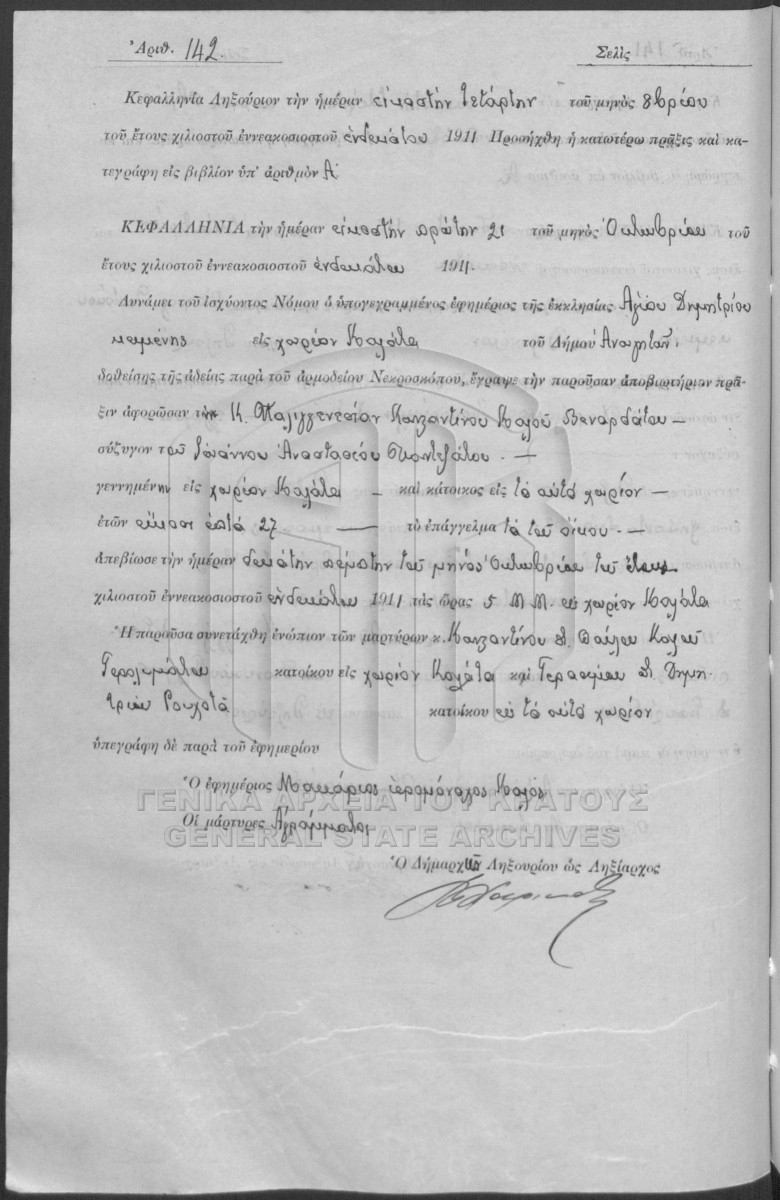 Ἀριθ. 142.
Σελὶς
Κεφαλληνία Ληξούριον τὴν ἡμέραν εἰκοστὴν τετάρτην τοῦ μηνὸς 8βρίου
τοῦ ἔτους χιλιοστοῦ ἐννεακοσιοστοῦ ἑνδεκάτου 1911 Προσήχθη ἡ κατωτέρω πρᾶξις καὶ κα-
τεγράφη εἰς βιβλίον ὑπ' ἀριθμὸν Α
ΚΕΦΑΛΛΗΝΙΑ τὴν ἡμέραν εἰκοστὴν πρώτην 21 τοῦ μηνὸς Ὀκτωβρίου τοῦ
ἔτους χιλιοστοῦ ἐννεακοσιοστοῦ ἑνδεκάτου 1911.
Δυνάμει τοῦ ἰσχύοντος Νόμου ὁ ὑπογεγραμμένος ἐφημέριος τῆς ἐκκλησίας Ἁγίου Δημητρίου
κειμένης εἰς χωρίον Καλάτα τοῦ Δήμου
δοθείσης τῆς ἀδείας παρὰ τοῦ ἁρμοδείου Νεκροσκόπου, ἔγραψε τὴν παροῦσαν ἀποβιωτήριον πρᾶ-
ξιν ἀφορῶσαν τὴν Κ. Παλιγγενεσίαν Κωνσαντίνου Καλοῦ Βεναρδάτου —
σύζυγον τοῦ Ἰωάννου Ἀναστασίου —
γεννημένην εἰς χωρίον Καλάτα — καὶ κάτοικος εἰς τὸ αὐτὸ χωρίον —
ἐτῶν εἴκοσι ἑπτά 27 — τὸ ἐπάγγελμα τὰ τοῦ οἴκου. —
ἀπεβίωσε τὴν ἡμέραν δεκάτην πέμπτην τοῦ μηνὸς Ὀκτωβρίου τοῦ ἔτους
χιλιοστοῦ ἐννεακοσιοστοῦ ἑνδεκάτου 1911 τὰς ὥρας 5 Μ.Μ. εἰς χωρίον Καλάτα
Ἡ παροῦσα συνετάχθη ἐνώπιον τῶν μαρτύρων κ. Κωνσαντίνου Παύλου Καλοῦ
Γερολυμάτου κατοίκου εἰς χωρίον Καλάτα καὶ Γερασίμου Δημη-
τρίου Ρουχοτᾶ κατοίκου εἰς τὸ αὐτὸ χωρίον
ὑπεγράφη δὲ παρὰ τοῦ ἐφημερίου
Ὁ ἐφημέριος Μακάριος ἱερομόναχος Καλός
ΓΕΝΙΚΑ ΑΡΧΕΙΑ ΤΟΥ ΚΡΑΤΟΥΣ
Οἱ μάρτυρες Ἀγράμματοι
GENERAL STATE ARCHIVES
Ὁ Δήμαρχος Ληξουρίου ὡς Ληξίαρχος